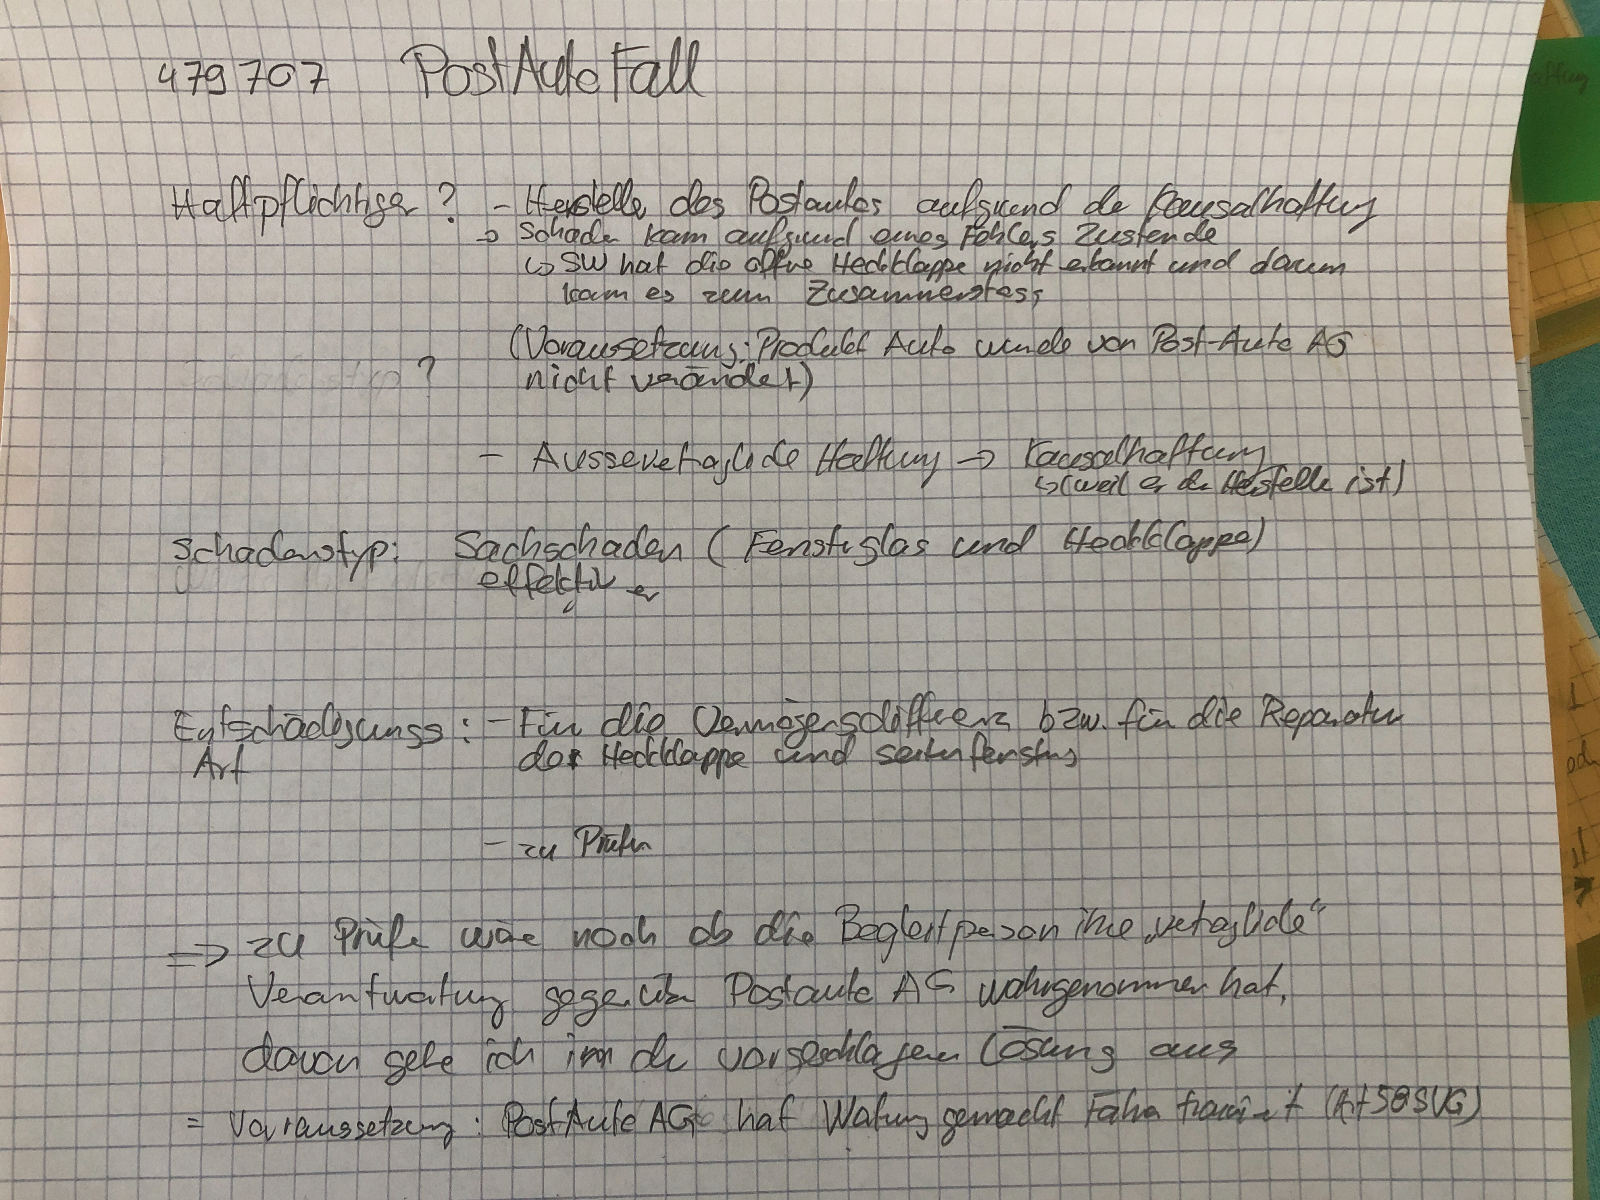 479707 PostAuto Fall
Haftpflichtiger? - Hersteller des Postautos aufgrund der Kausalhaftung
→ Schaden kam aufgrund eines Fehlers zustande
↳ SW hat die offne Heckklappe nicht erkannt und darum
kam es zum Zusammenstoss
(Voraussetzung: Produkt Auto wurde von Post-Auto AG
? nicht verändert)
- Ausservertragliche Haftung → Kausalhaftung
↳ (weil er der Hersteller ist)
Schadenstyp: Sachschaden (Fensterglas und Heckklappe)
effektiver
Entschädigungs: - Für die Vermögensdifferenz bzw. für die Reparatur
Art der Heckklappe und Seitenfensters
- zu Prüfen
⇒ zu Prüfe wäre noch ob die Begleitperson ihre „vertragliche“
Verantwortung gegenüber Postauto AG wahrgenommen hat,
davon gehe ich in der vorgeschlagenen Lösung aus
= Voraussetzung: PostAuto AG hat Wartung gemacht Fahrer trainiert (Art 58 SVG)